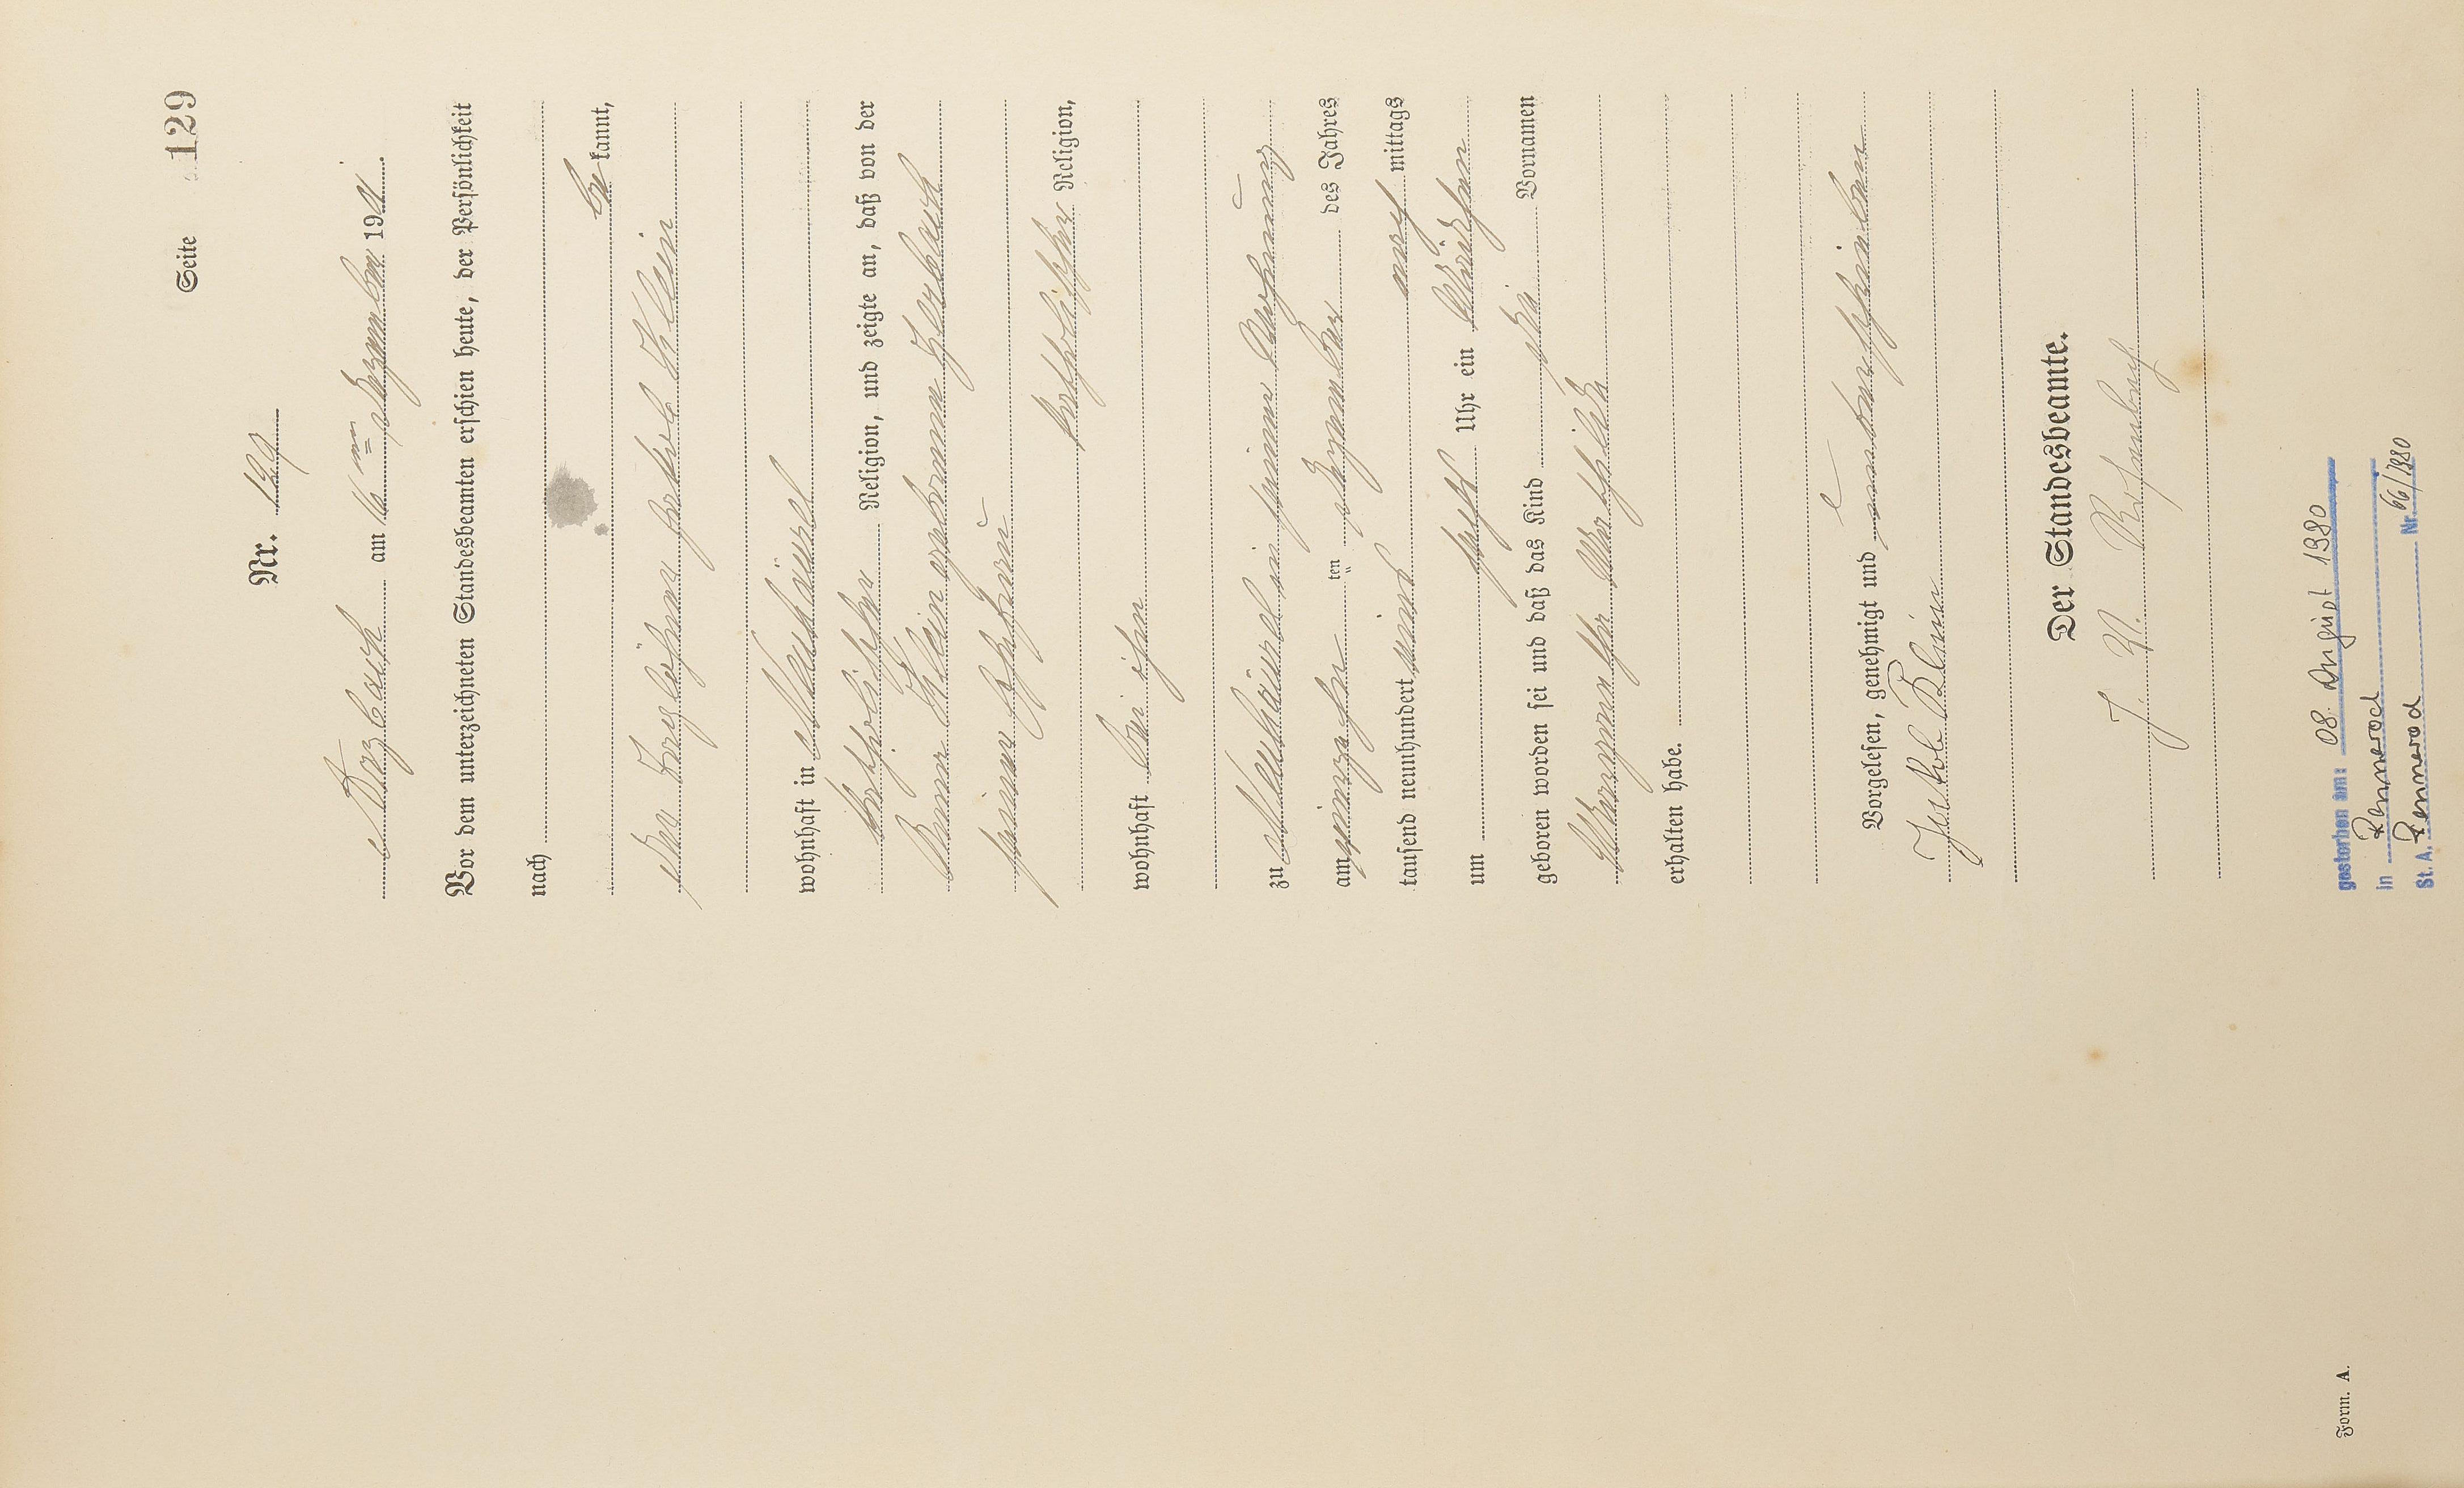 Seite 129
Nr. 129
am 16ten Dezember 1911.
Vor dem unterzeichneten Standesbeamten erschien heute, der Persönlichkeit
nach
be kannt,
der Taglöhner Jakob Klein
wohnhaft in Neuhäusel
katholischer Religion, und zeigte an, daß von der
Anna Klein geborenen Herbach
seiner Ehefrau
katholischer Religion,
wohnhaft bei ihm
zu Neuhäusel in seiner Wohnung
am zehn ten Dezember des Jahres
tausend neunhundert nach mittags
um Uhr ein Mädchen
geboren worden sei und daß das Kind die Vornamen
Margaretha
erhalten habe.
Vorgelesen, genehmigt und unterschrieben
Jakob Klein
Der Standesbeamte.
J. N.
gestorben am: 08. August 1980
in Rennerod
St. A. Rennerod Nr. 66/1980
Form. A.